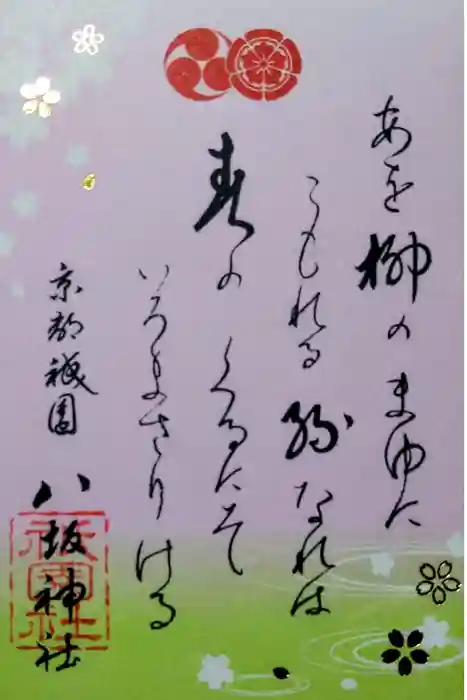 あを柳のまゆに
こもれる絲なれは
春のくるにそ
いろまさりける
京都祇園
八坂神社
祇園社